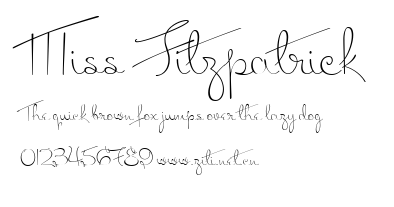 Miss Fitzpatrick
The quick brown fox jumps over the lazy dog
0123456789